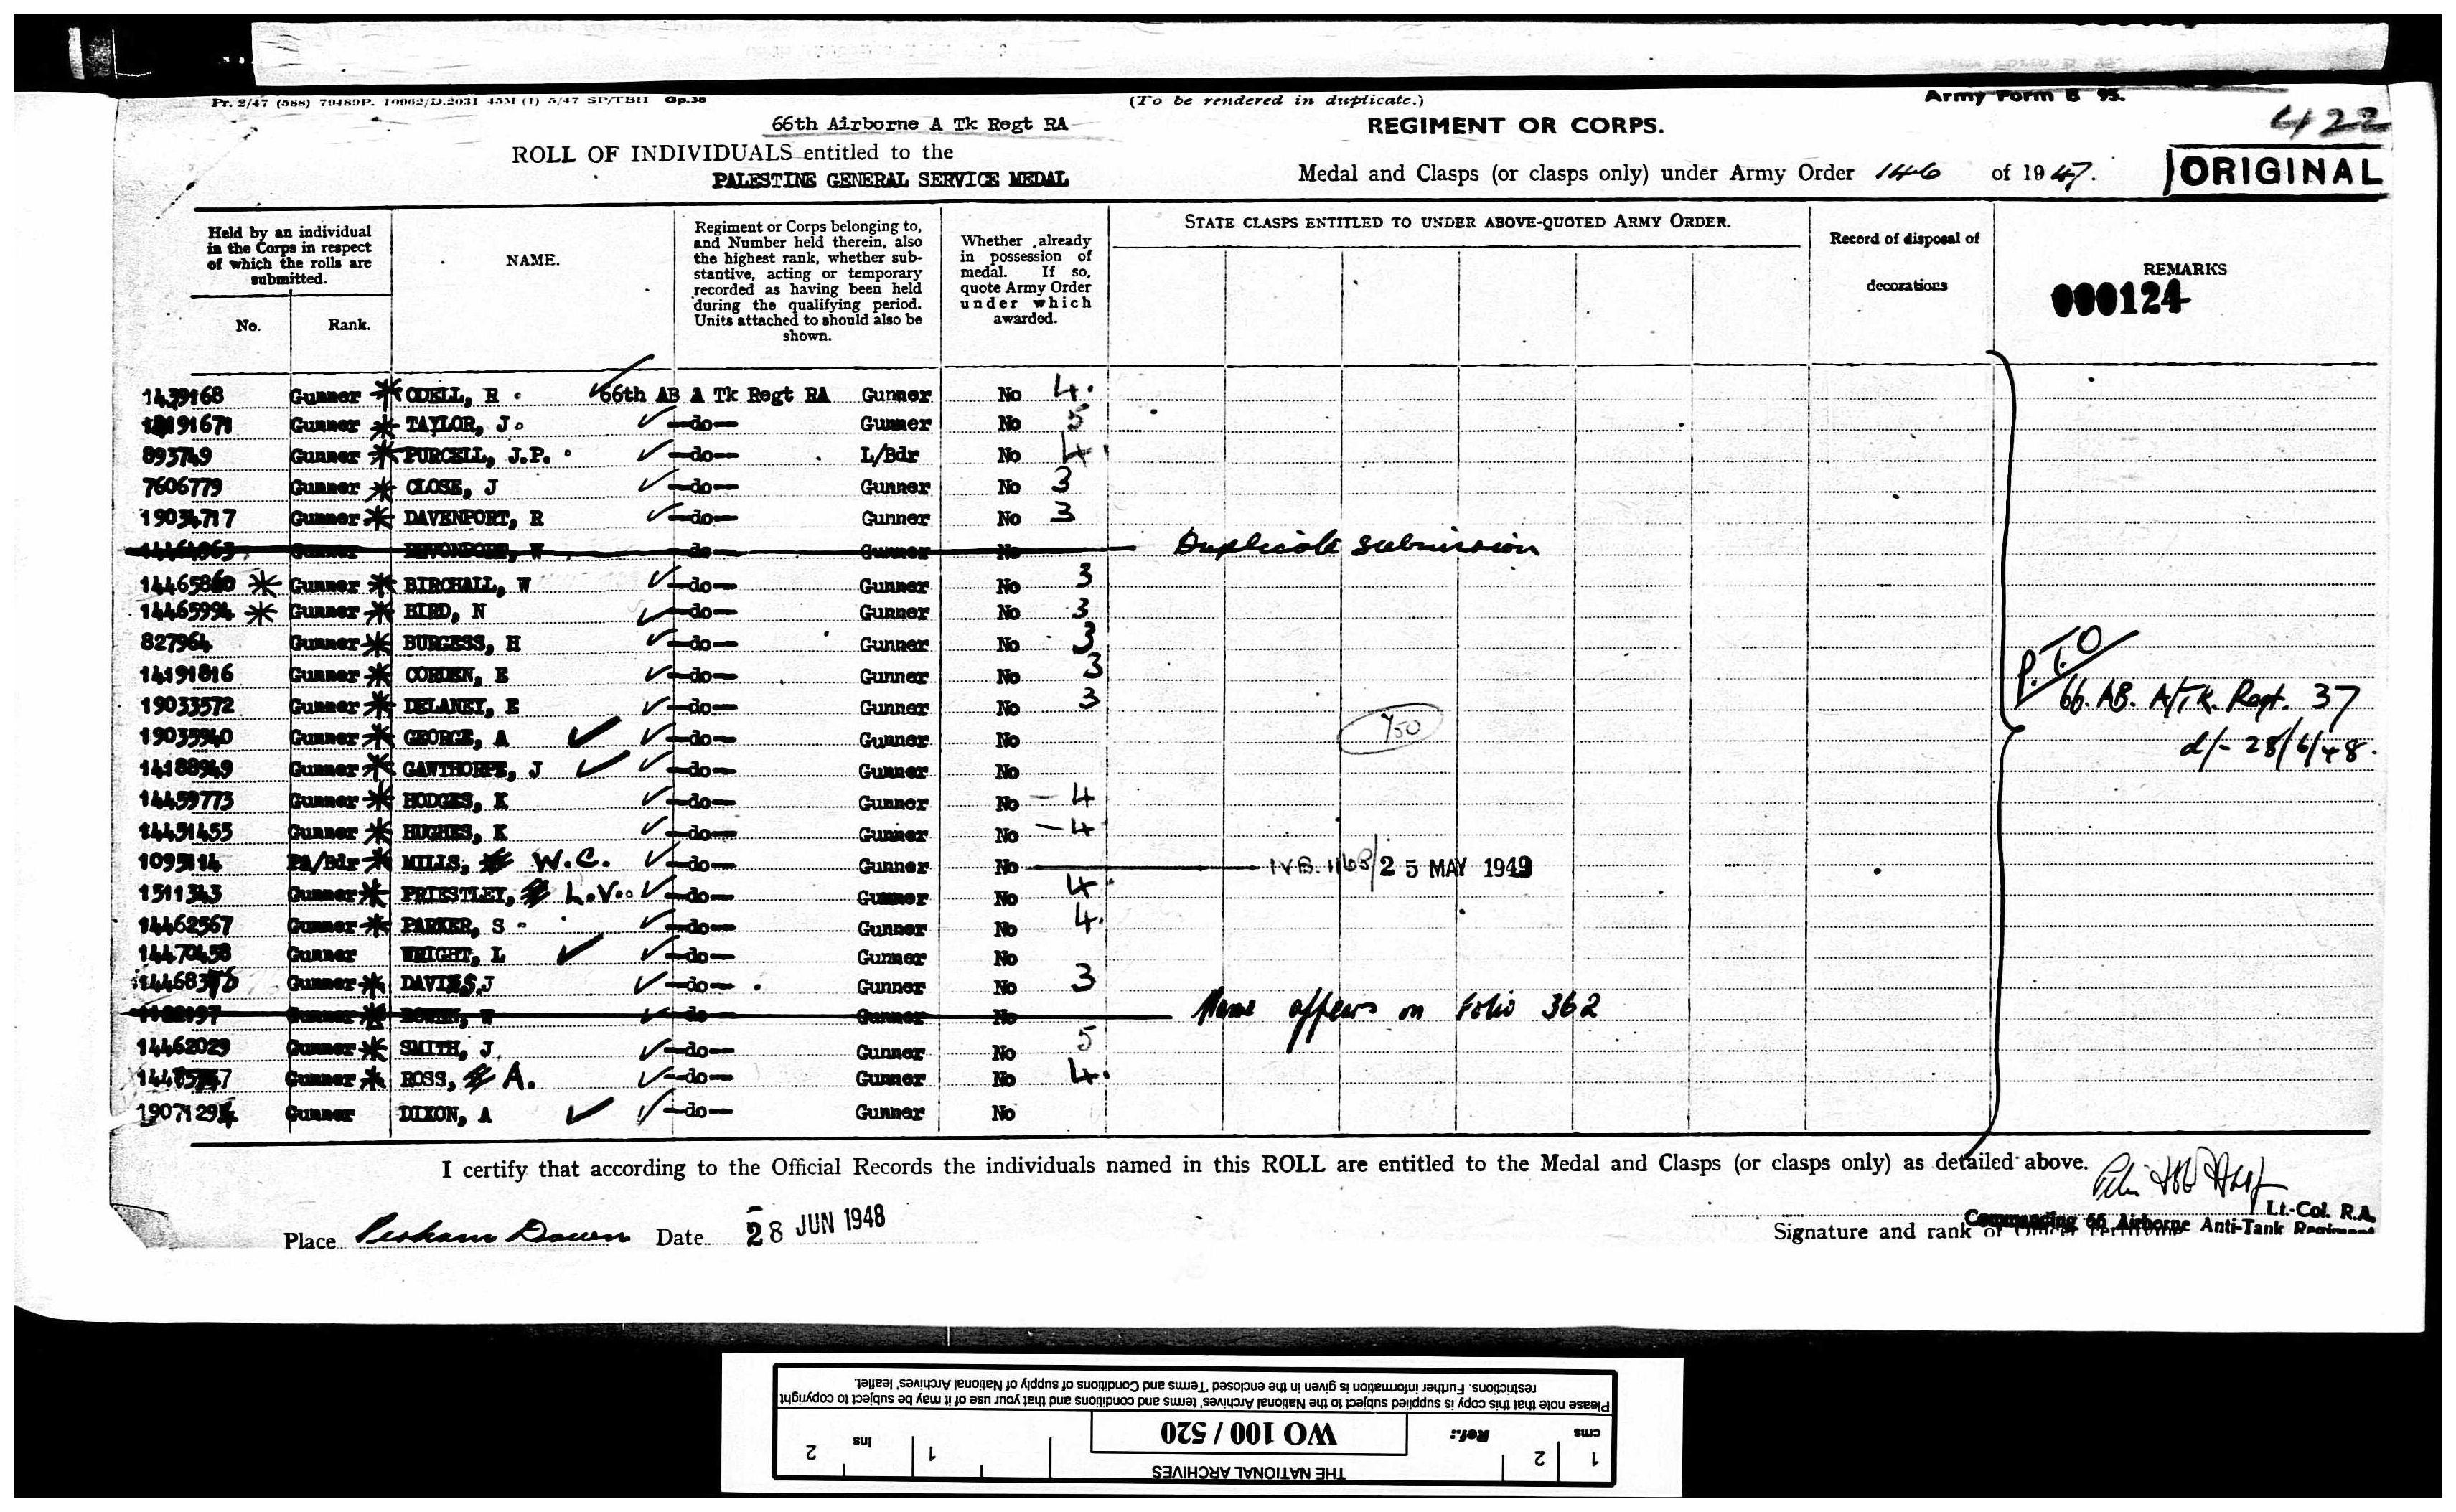 Pr. 2/47 (588) 79489P. 10962/D.2031 45M (1) 5/47 SP/TBH Gp.38
(To be rendered in duplicate.)
Army Form B 95.
422
66th Airborne A Tk Regt RA
REGIMENT OR CORPS.
ROLL OF INDIVIDUALS entitled to the
PALESTINE GENERAL SERVICE MEDAL
Medal and Clasps (or clasps only) under Army Order 146 of 1947.
ORIGINAL
Held by an individual in the Corps in respect of which the rolls are submitted.
No.
Rank.
NAME.
Regiment or Corps belonging to, and Number held therein, also the highest rank, whether substantive, acting or temporary recorded as having been held during the qualifying period. Units attached to should also be shown.
Whether already in possession of medal. If so, quote Army Order under which awarded.
STATE CLASPS ENTITLED TO UNDER ABOVE-QUOTED ARMY ORDER.
Record of disposal of decorations
REMARKS
000124
1439168 Gunner * ODELL, R 66th AB A Tk Regt RA Gunner No 4.
Gunner * TAYLOR, J. —do— Gunner No 5
893749 Gunner * PURCELL, J.P. —do— L/Bdr No 4
7606779 Gunner * CLOSE, J —do— Gunner No 3
19034717 Gunner * DAVENPORT, R —do— Gunner No 3
14461963 Gunner W —do— Gunner No Duplicate submission
14465860 * Gunner * BIRCHALL, W —do— Gunner No 3
14465994 * Gunner * BIRD, N —do— Gunner No 3
827964 Gunner * BURGESS, H —do— Gunner No 3
14191816 Gunner * CORDEN, E —do— Gunner No 3
19033572 Gunner * DELANEY, E —do— Gunner No 3
19035940 Gunner * GEORGE, A —do— Gunner No
14188949 Gunner * GAWTHORPE, J —do— Gunner No
14459773 Gunner * HODGES, K —do— Gunner No — 4
14451455 Gunner * HUGHES, K —do— Gunner No — 4
1095114 PA/Bdr * MILLS, W.C. —do— Gunner No 25 MAY 1949
1511343 Gunner * PRIESTLEY, L.V. —do— Gunner No 4
14462567 Gunner * PARKER, S —do— Gunner No 4.
14470458 Gunner WRIGHT, L —do— Gunner No
Gunner * DAVIES, J —do— Gunner No 3
1122197 Gunner * BOWEN, W —do— Gunner No Name appears on Folio 362
14462029 Gunner * SMITH, J —do— Gunner No 5
Gunner * ROSS, A. —do— Gunner No 4.
19071294 Gunner DIXON, A —do— Gunner No
P.T.O
66. AB. A/TK. Regt. 37
d/- 28/6/48.
I certify that according to the Official Records the individuals named in this ROLL are entitled to the Medal and Clasps (or clasps only) as detailed above.
Place Perham Down Date 28 JUN 1948
Lt.-Col. R.A.
Signature and rank of
Commanding 66 Airborne Anti-Tank Regiment
THE NATIONAL ARCHIVES
cms 1 2 Ref.: WO 100 / 520 1 Ins 2
Please note that this copy is supplied subject to the National Archives' terms and conditions and that your use of it may be subject to copyright
restrictions. Further information is given in the enclosed 'Terms and Conditions of supply of National Archives' leaflet.